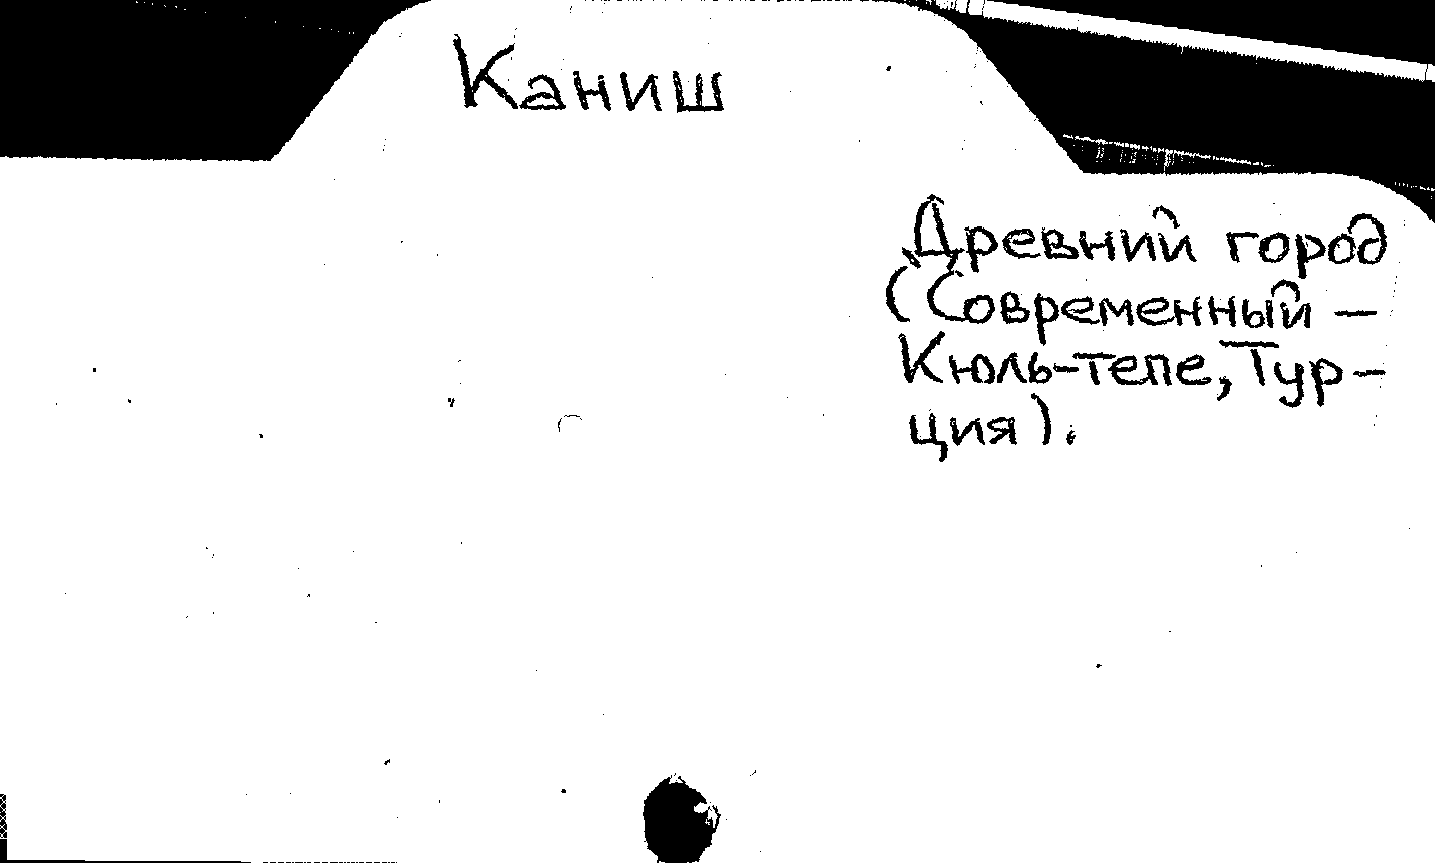 Каниш
Древний город
(Современный –
Кюль-тепе, Тур-
ция).